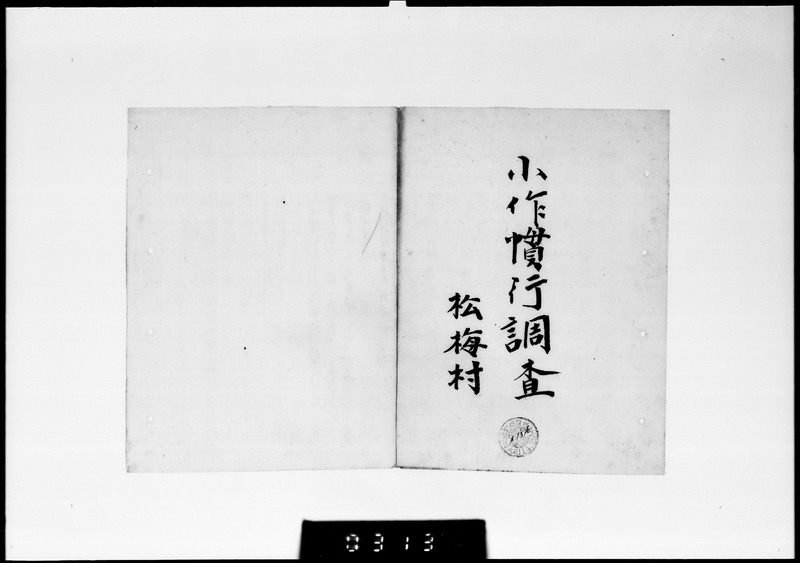 小作慣行調査
松梅村
0313